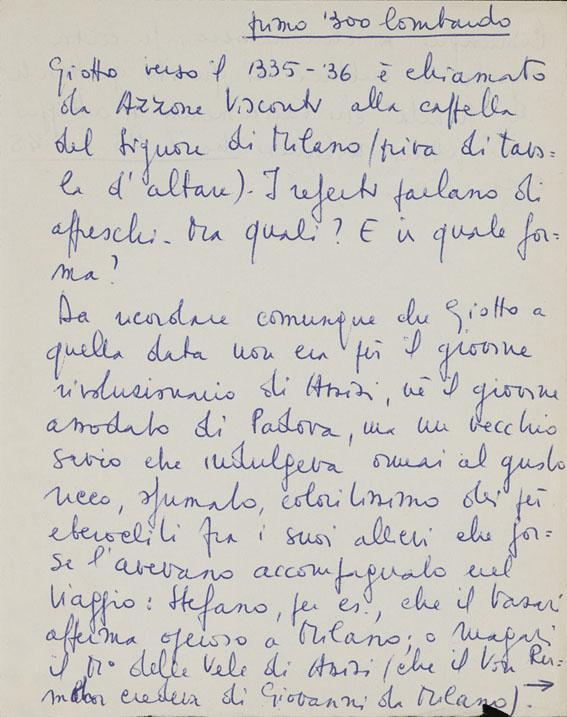 primo '300 lombardo
Giotto verso il 1335-'36 è chiamato
da Azzone Visconti alla cappella
del Signore di Milano (priva di tavo=
le d'altare). I referti parlano di
affreschi. Ma quali? E in quale for=
ma?
Da ricordare comunque che Giotto a
quella data non era più il giovine
rivoluzionario di Assisi, nè il giovine
assodato di Padova, ma un vecchio
savio che indulgeva ormai al gusto
ricco, sfumato, coloritissimo dei più
eterocliti fra i suoi allievi che for=
se l'avevano accompagnato nel
viaggio: Stefano, per es., che il Vasari
afferma operoso a Milano; o magari
il Mº delle Vele di Assisi (che il Von Rin=
telen credeva di Giovanni da Milano). →